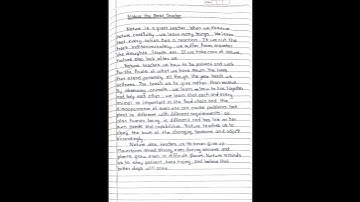 Nature The Best Teacher
Nature is a great teacher. When we observe
nature carefully, we learn many things. We learn
that every action has a reaction. If we cut the
trees indiscriminately, we suffer from disaster
like droughts, floods etc. If we take care of nature,
nature also look after us.
Nature teaches us how to be patient and wait
for the fruits of what we have sown. The trees
that stand patiently all through the year teach us
patience. The tree's us to give rather than receive.
By observing animals, we learn how to live together
and help each other. We learn that each and every
animal is important in the food chain and the
disappearance of even one can cause problems. Each
plant is different with different requirements so
also human being is different and has his or her
own needs and capabilities. Nature teaches us to
obey the laws of the changing seasons and adjust
accordingly.
Nature also teaches us to never give up.
Mountains stand strong even during storms and
plants grow even in difficult places. Nature reminds
us to stay patient, keep trying and believe that
better days will come.